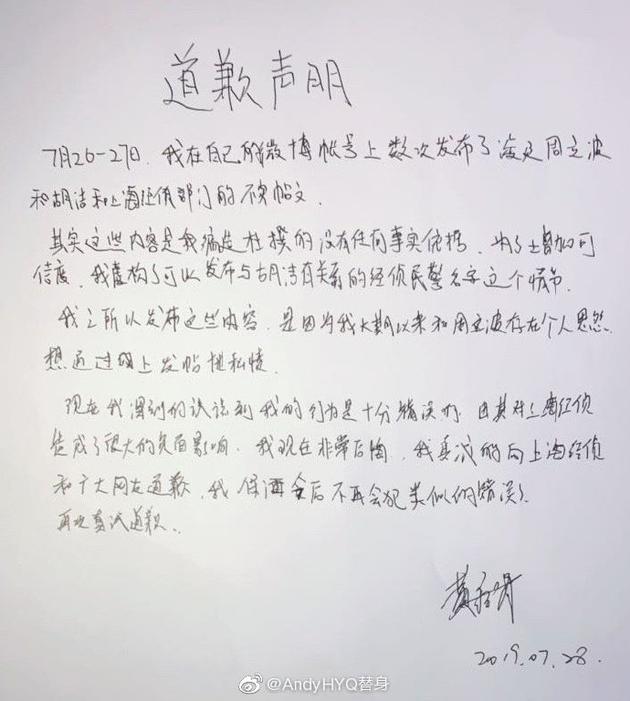 道歉声明
7月26-27日，我在自己的微博帐号上数次发布了涉及周立波
和胡洁和上海经侦部门的不实帖文．
其实这些内容是我编造杜撰的没有任何事实依据．为了增加可
信度，我虚构了可以发布与胡洁有关系的经侦民警名字这个情节．
我之所以发布这些内容．是因为我长期以来和周立波存在个人恩怨
想通过网上发帖泄私愤．
现在我深刻的认识到我的行为是十分错误的，尤其对上海经侦
造成了很大的负面影响．我现在非常后悔，我真诚的向上海经侦
和广大网友道歉，我保证今后不再会犯类似的错误，
再次真诚道歉．
2019.07.28.
@AndyHYQ替身